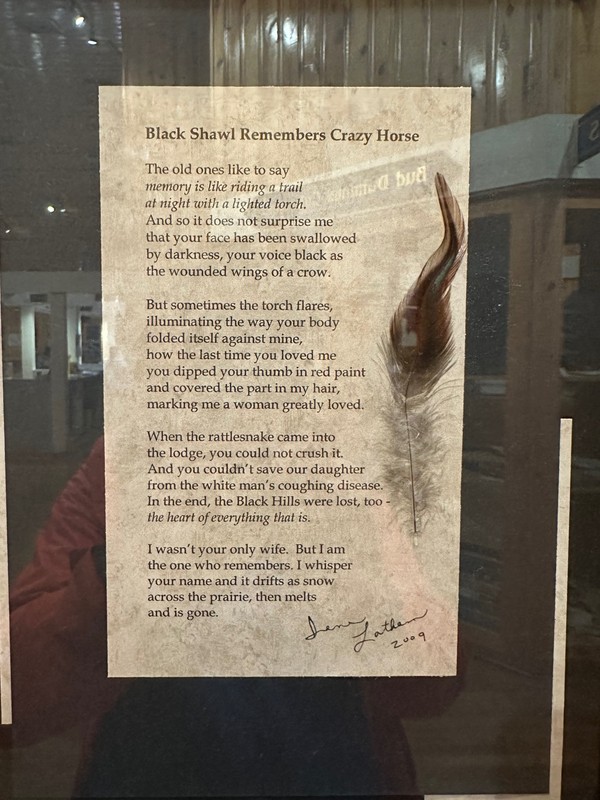 Black Shawl Remembers Crazy Horse
The old ones like to say
memory is like riding a trail
at night with a lighted torch.
And so it does not surprise me
that your face has been swallowed
by darkness, your voice black as
the wounded wings of a crow.
But sometimes the torch flares,
illuminating the way your body
folded itself against mine,
how the last time you loved me
you dipped your thumb in red paint
and covered the part in my hair,
marking me a woman greatly loved.
When the rattlesnake came into
the lodge, you could not crush it.
And you couldn't save our daughter
from the white man's coughing disease.
In the end, the Black Hills were lost, too -
the heart of everything that is.
I wasn't your only wife.  But I am
the one who remembers. I whisper
your name and it drifts as snow
across the prairie, then melts
and is gone.
Irene Latham
2009